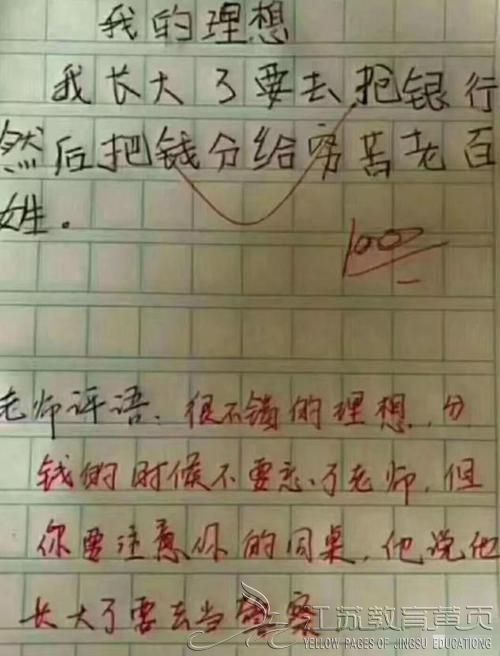 我的理想
我长大了要去抢银行
然后把钱分给穷苦老百
姓。
100
老师评语：很不错的理想，分
钱的时候不要忘了老师，但
你要注意你的同桌，他说他
长大了要去当警察
江苏教育黄页
YELLOW PAGES OF JINGSU EDUCATIONG